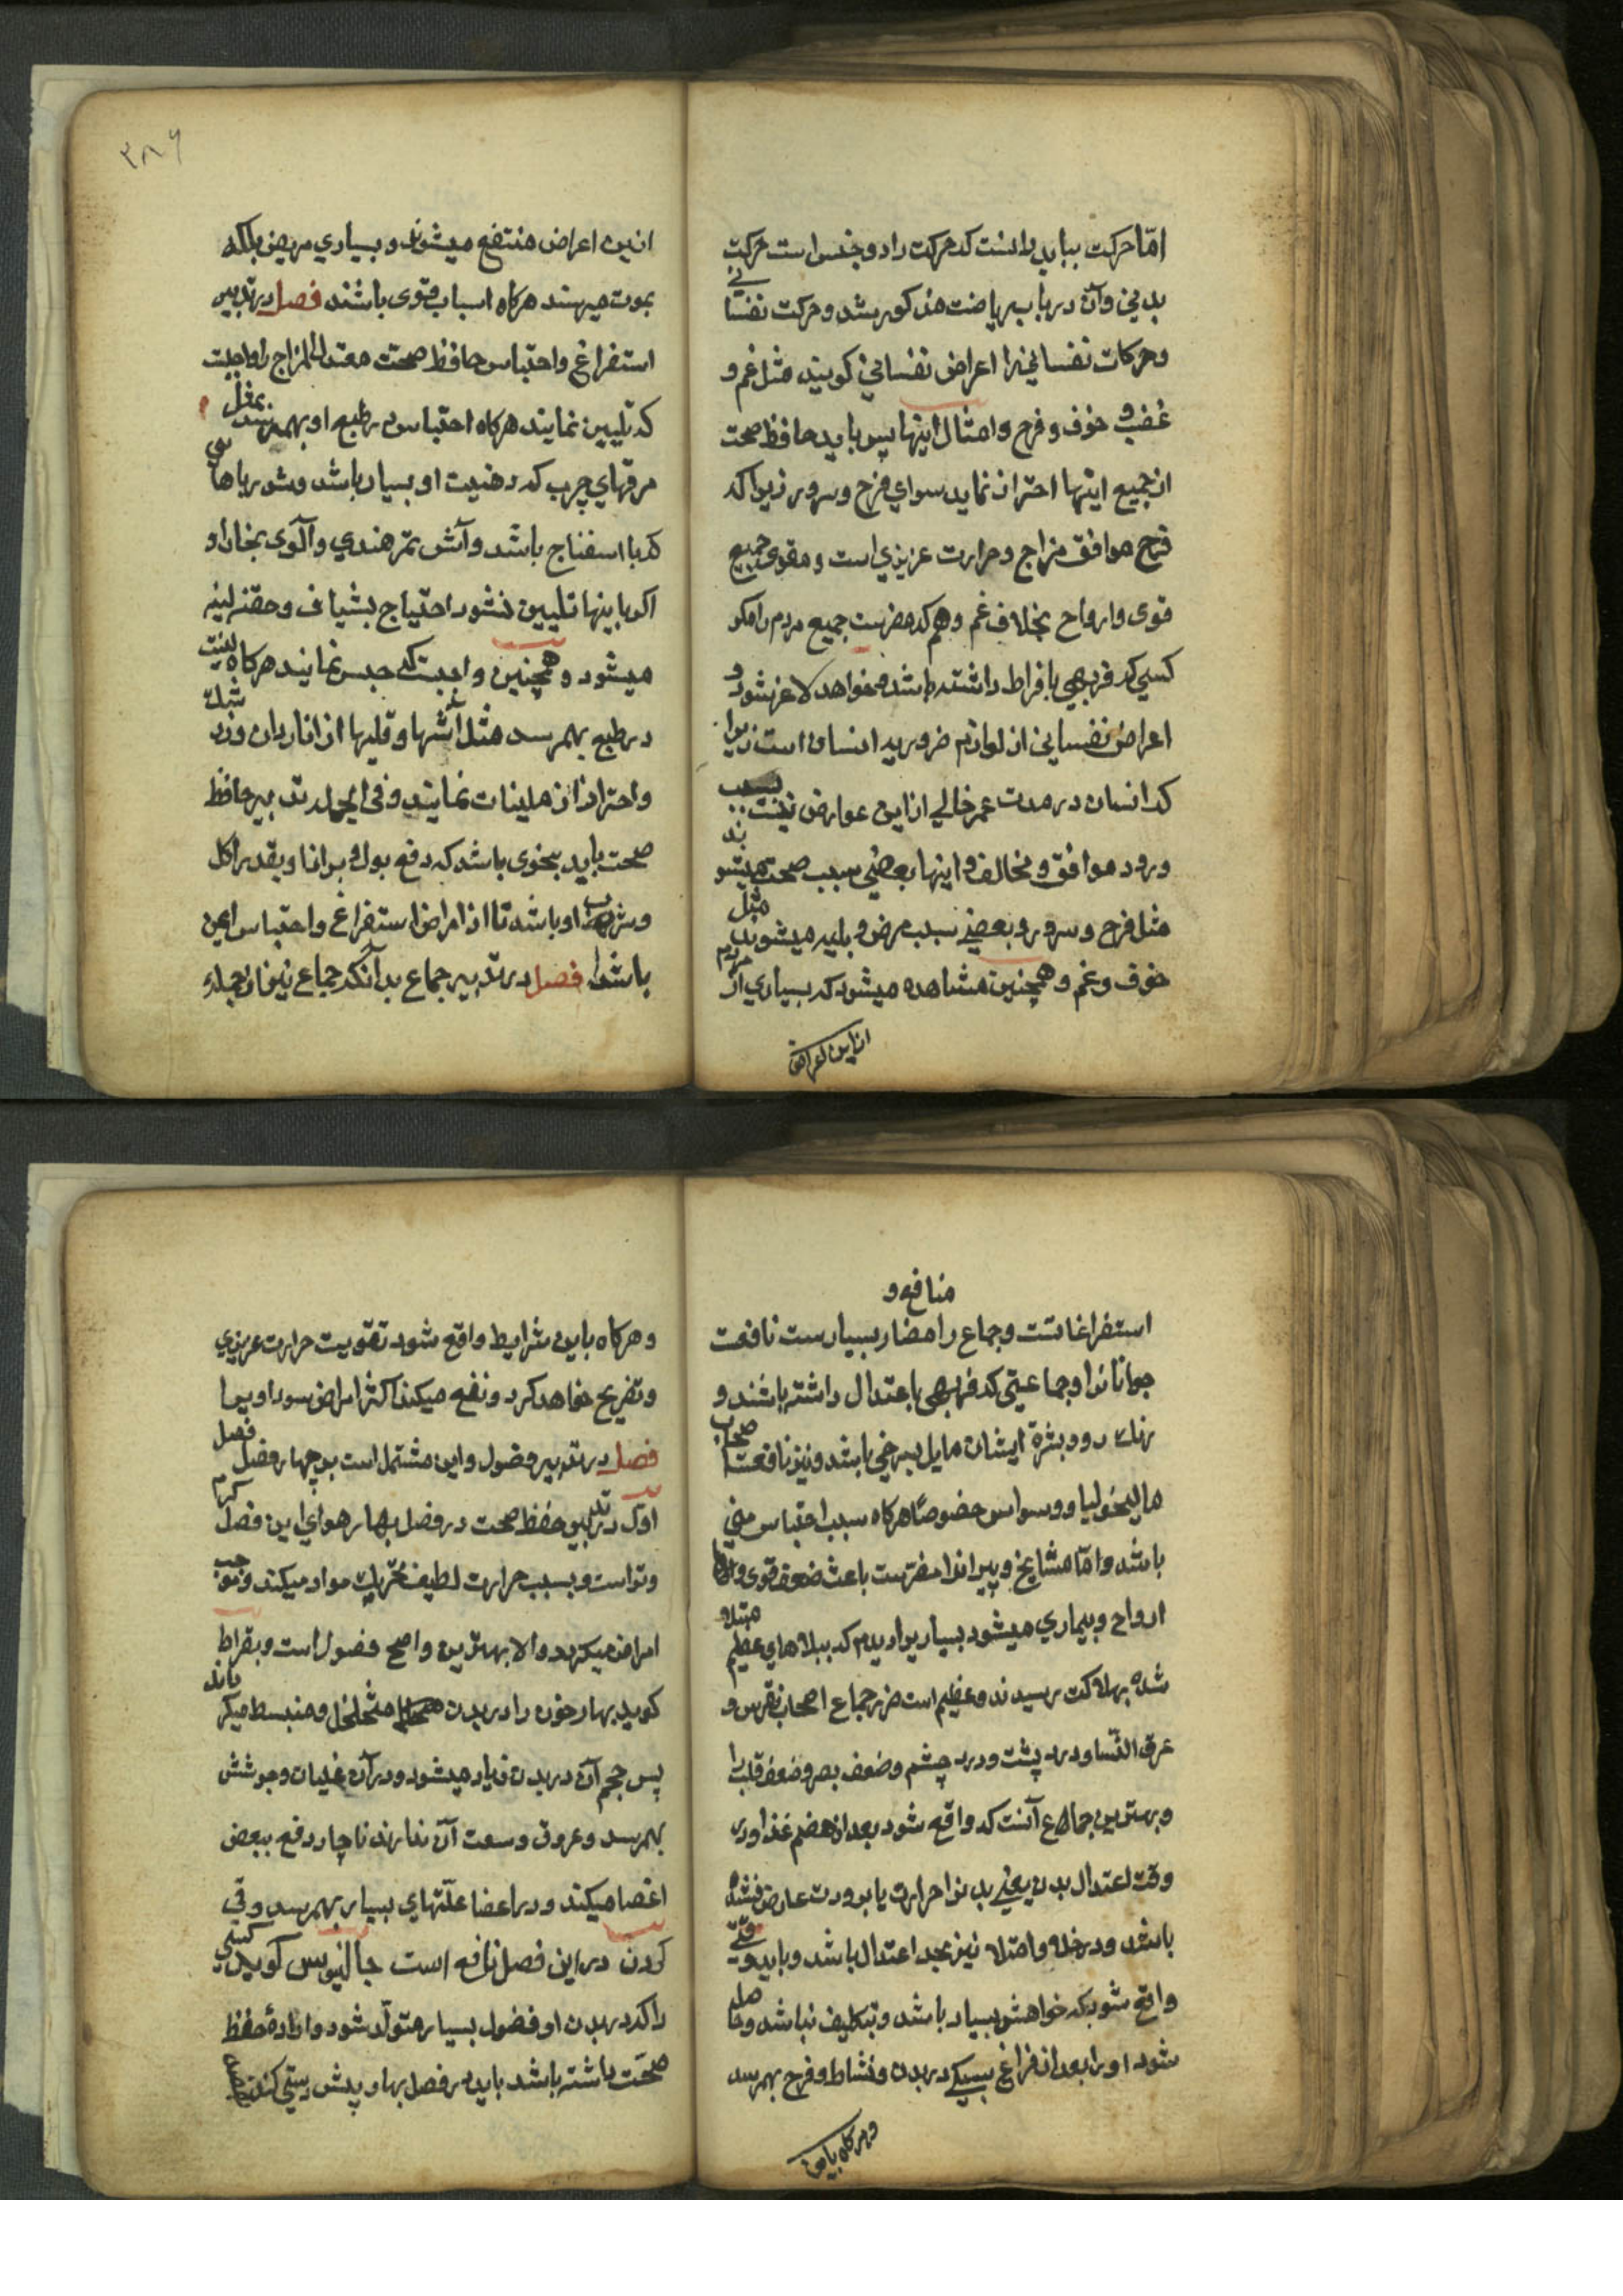 امّا حرکت بباید دانست که حرکت را دو جنس است حرکت
بدنی و آن در باب ریاضت مذکور شد و حرکت نفسانی
و حرکات نفسانی را اعراض نفسانی کویند مثل غم و
غضب و خوف و فرح و امثال اینها پس باید حافظ صحت
از جمیع اینها احتراز نماید سوای فرح و سرور زیرا که
فرح موافق مزاج و حرارت عزیزی است و مقوی جمیع
قوی و ارواح بخلاف غم و هم که مضرست جمیع مردم را مکر
کسی که فربهی بافراط داشته باشد و خواهد لاغر شود و
اعراض نفسانی از لوازم ضروریه انسان است زیرا
که انسان در مدت عمر خالی از این عوارض نیست بسبب
ورود موافق و مخالف و اینها بعضی سبب صحت میشوند
مثل فرح و سرور و بعضی سبب مرض و بلیه میشوند مثل
خوف و غم و همچنین مشاهده میشود که بسیاری از مردم
از این اعراض
۳۸۶
ازین اعراض منتفع میشوند و بسیاری مریض بلکه
بموت میرسند هرکاه اسباب قوی باشند فصل در تدبیر
استفراغ و احتباس حافظ صحت معتدل المزاج را واجبست
که تلیین نمایند هرکاه احتباس در طبع او بهمرسد بمثل
مرقهای چرب که دهنیت او بسیار باشد و شورباهایی
که با اسفناج باشد و آش تمر هندی و آلوی بخارا و
اکر باینها تلیین نشود احتیاج بشیاف و حقنه لینه
میشود و همچنین واجبست که حبس نمایند هرکاه لینت
در طبع بهمرسد مثل آشها و قلیها از اناردان و زرشک
و احتراز از ملینات نمایند و فی الجمله تدبیر حافظ
صحت باید بنحوی باشد که دفع بول و براز او بقدر اکل
و شرب او باشد تا از امراض استفراغ و احتباس ایمن
باشد فصل در تدبیر جماع بدآنکه جماع نیز از جمله
منافع و
استفراغاتست و جماع را مضار بسیارست نافعست
جوانانرا و جماعتی که فربهی باعتدال داشته باشند و
رنک رو و بشرۀ ایشان مایل بسرخی باشد و نیز نافعست اصحاب
مالیخولیا و وسواس خصوصًا هرکاه سبب احتباس منی
باشد و امّا مشایخ و پیرانرا مضرست باعث ضعف قوی و
ارواح و بیماری میشود بسیاریرا دیدم که ببلاهای عظیم مبتلا
شده بهلاکت رسیدند و عظیم است ضرر جماع اصحاب نقرس و
عرق النّسا و درد پشت و درد چشم و ضعف بصر و ضعف قلب را
و بهترین جماع آنست که واقع شود بعد از هضم غذا و در
وقت اعتدال بدن یعنی بدنرا حرارت یا برودت عارض نشده
باشد و در خلو و امتلا نیز بحد اعتدال باشد و باید وقتی
واقع شود که خواهش بسیار باشد و بتکلیف نباشد و حاصل
شود او را بعد از فراغ سبکی در بدن و نشاط و فرح بهمرسد
و هرکاه باین
و هرکاه باین شرایط واقع شود تقویت حرارت عریزی
و تفریح خواهد کرد و نفع میکند اکثر امراض سوداویرا
فصل در تدبیر فصول و این مشتمل است بر چهار فصل فصل
اول در تدبیر حفظ صحت در فصل بهار هوای این فصل کرم
و تر است و بسبب حرارت لطیف تحریک مواد میکند و موجب
امراض میکردد و الا بهترین و اصح فصول است و بقراط
کوید بهار خون را در بدن متخلخل و منبسط میکرداند
پس حجم آن در بدن زیاد میشود و در آن غلیان و جوشش
بهمرسد و عروق وسعت آن ندارند ناچار دفع ببعض
اعضا میکند و در اعضا علتهای بسیار بهمرسد و قی
کردن در این فصل نافع است جالینوس کوید کسی
را که در بدن او فضول بسیار متولّد شود و ارادۀ حفظ
صحّت داشته باشد باید در فصل بهار پیش دستی کند